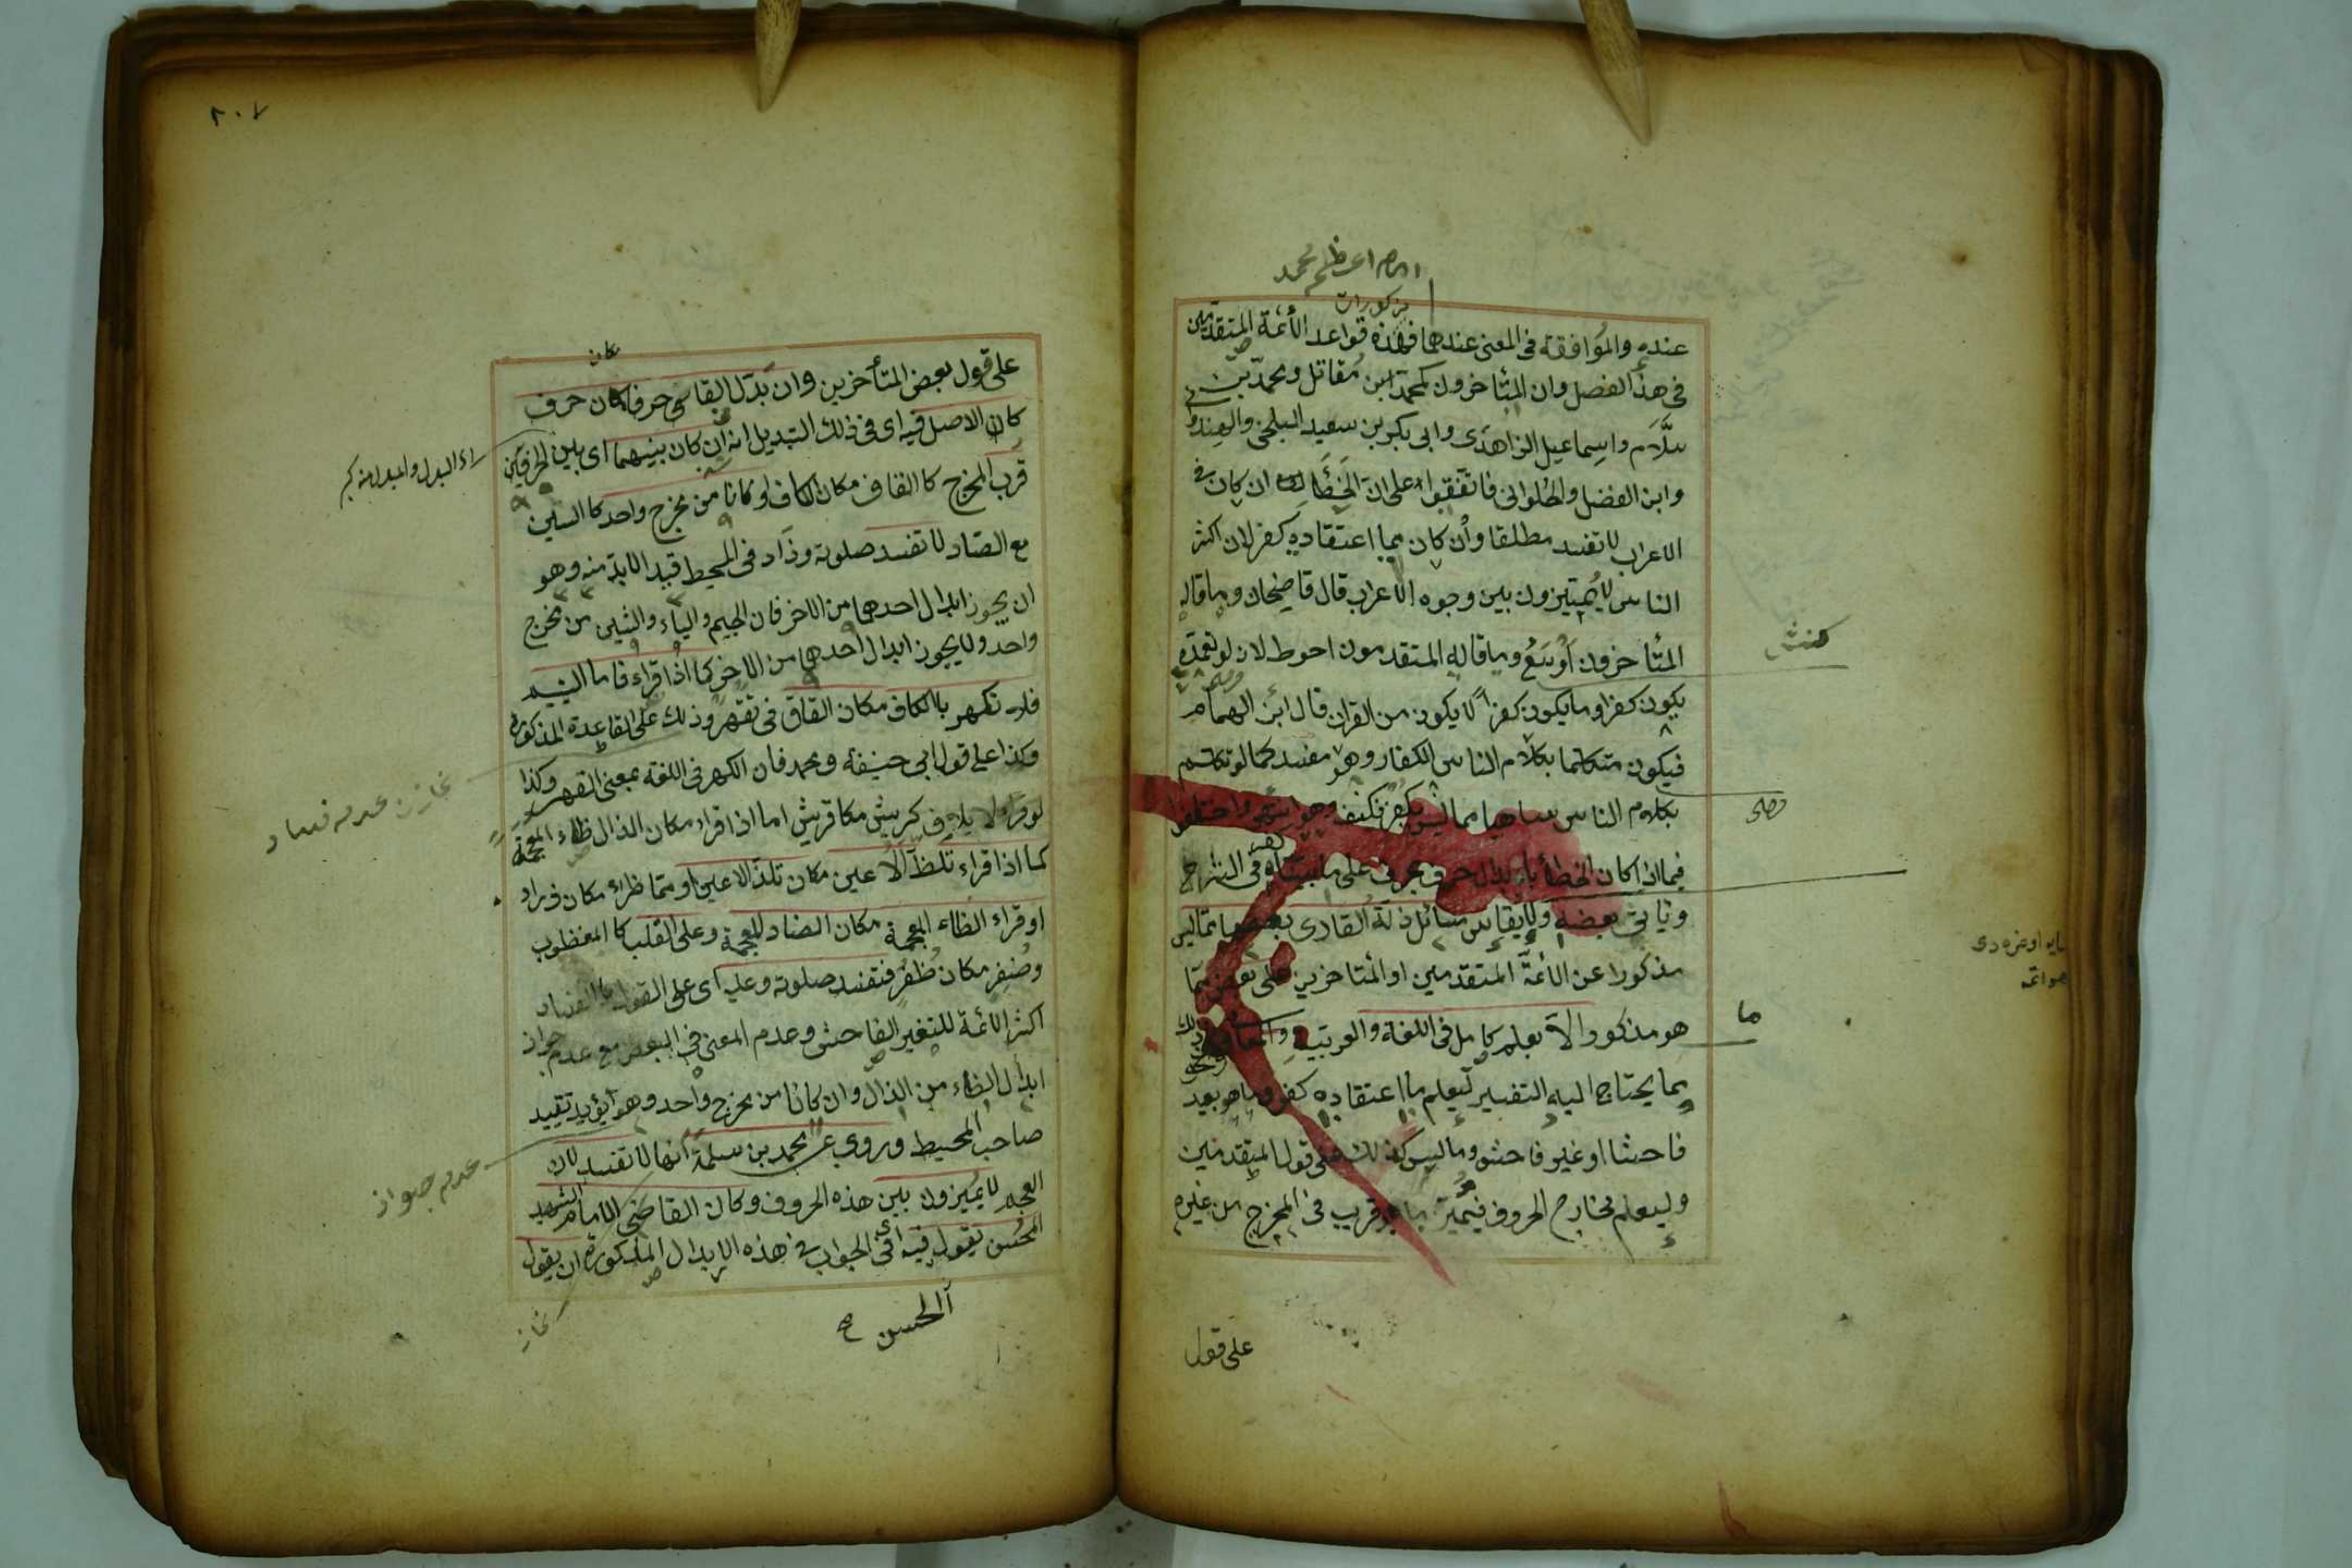 امام اعظم محمد
مذكورات
عنده والموافقة فى المعنى عندهما فهذه قواعد الأئمة المتقدمين
فى هذا الفصل وان المتأخرون كمحمد ابن مقاتل ومحمد بن
سلام واسماعيل الزاهدى وابى بكر بن سعيد البلخى والهندو
وابن الفضل والحلوانى فاتفقوا على ان الخطأ ان كان فى
الاعراب لا تفسد مطلقا وان كان مما اعتقاده كفر لان اكثر
الناس لا يميزون بين وجوه الاعراب قال قاضيخان وما قاله
المتأخرون اوسع وما قاله المتقدمون احوط لانه لو تعمده
يكون كفرا وما يكون كفرا لا يكون من القران قال ابن الهمام
فيكون متكلما بكلام الناس الكفار وهو مفسد كما لو تكلم
بكلام الناس ساهيا مما ليس بكفر فكيف وهو كفر واختلفوا
فيما اذا كان الخطأ بابدال حرف بحرف على ما بيناه فى الشرح
وياتى بعضه ولا يقاس مسائل زلة القارى بعضها مما ليس
مذكورا عن الأئمة المتقدمين او المتاخرين على بعض مما
هو مذكور الا بعلم كامل فى اللغة والعربية والمعانى ونحو ذلك
مما يحتاج اليه التفسير ليعلم ما اعتقاده كفر وما هو بعيد
فاحشا او غير فاحش وما ليس كذلك على قول المتقدمين
وليعلم مخارج الحروف فيميز ما هو قريب فى المخرج من غيره
على قول
ما
٢٠٧
مكان
على قول بعض المتأخرين وان بدل القارى حرفا مكان حرف
كان الاصل فيه اى فى ذلك التبديل انه ان كان بينهما اى بين الحرفين
قرب المخرج كالقاف مكان الكاف او كانا من مخرج واحد كالسين
مع الصاد لا تفسد صلوته وزاد فى المحيط قيد الا بد منه وهو
ان يجوز ابدال احدهما من الاخر فان الجيم والياء والشين من مخرج
واحد ولا يجوز ابدال احدهما من الاخر كما اذا قراء فاما اليتيم
فلا تكهر بالكاف مكان القاف فى تقهر وذلك على القاعدة المذكورة
وكذا على قول ابى حنيفة ومحمد فان الكهر فى اللغة بمعنى القهر وكذا
لو قراء لايلاف كريش مكان قريش اما اذا قراء مكان الذال ظاء المعجمة
كما اذا قراء تلظ الاعين مكان تلذ الاعين او مما ظراء مكان ذراء
او قراء الظاء المعجمة مكان الضاد المعجمة وعلى القلب كالمغظوب
وضفر مكان ظفر فتفسد صلوته وعليه اى على القول بالفساد
اكثر الائمة للتغير الفاحش وعدم المعنى فى البعض مع عدم جواز
ابدال الظاء من الذال وان كانا من مخرج واحد وهو يؤيد تقييد
صاحب المحيط وروى عن محمد بن سلمة انها لا تفسد لان
العجم لا يميزون بين هذه الحروف وكان القاضى الامام الشهيد
المحسن يقول فيه اى فى الجواب فى هذه الابدال المذكورة ان يقول
الحسن
نمازن عدم فساد
عدم جواز
نماز